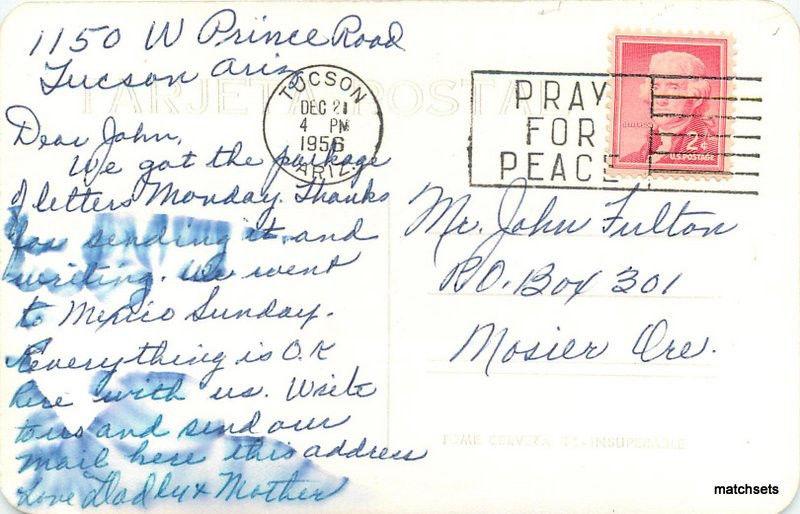 1150 W Prince Road
Tucson Ariz
TARJETA POSTAL
TUCSON
DEC 21
4 PM
1956
ARIZ.
PRAY
FOR
PEACE
2¢
U.S. POSTAGE
Dear John,
We got the package
of letters Monday. Thanks
for sending it and
writing. We went
to Mexico Sunday.
Everything is O.K
here with us. Write
to us and send our
mail here this address
Love Daddy + Mother
Mr. John Fulton
P.O. Box 301
Mosier Ore.
TOME CERVEZA
INSUPERABLE
matchsets